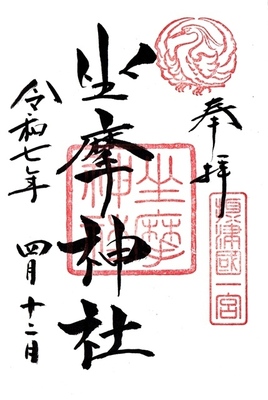 奉拝
摂津國一宮
坐摩神社
坐摩神社
令和七年 四月十二日